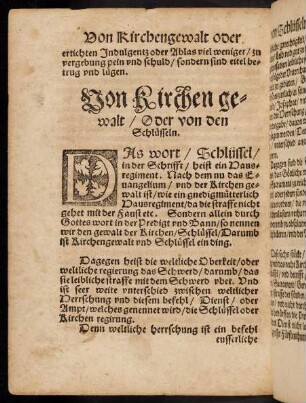 Von Kirchengewalt oder
ertichten Indulgentz oder Ablas viel weniger / zu
vergebung pein vnd schuld / sondern sind eitel be-
trug vnd lügen.
Von Kirchen ge-
walt / Oder von den
Schlüsseln.
DAs wort / Schlüssel /
in der Schrifft / heist ein Haus-
regiment. Nach dem nu das E-
uangelium / vnd der Kirchen ge-
walt ist / wie ein gnedig mütterlich
Hausregiment / da die straffe nicht
gehet mit der Faust etc. Sondern allein durch
Gottes wort in der Predigt vnd Bann / so nennen
wir den gewalt der Kirchen / Schlüssel / Darumb
ist Kirchengewalt vnd Schlüssel ein ding.
Dagegen heist die weltliche Oberkeit / oder
weltliche regierung das Schwerd / darumb / das
sie leibliche straffe mit dem Schwerd vbet. Vnd
ist seer weite vnterschied zwischen weltlicher
Herrschung vnd diesem befehl / Dienst / oder
Ampt / welches genennet wird / die Schlüssel oder
Kirchen regirung.
Denn weltliche herrschung ist ein befehl
eusserliche